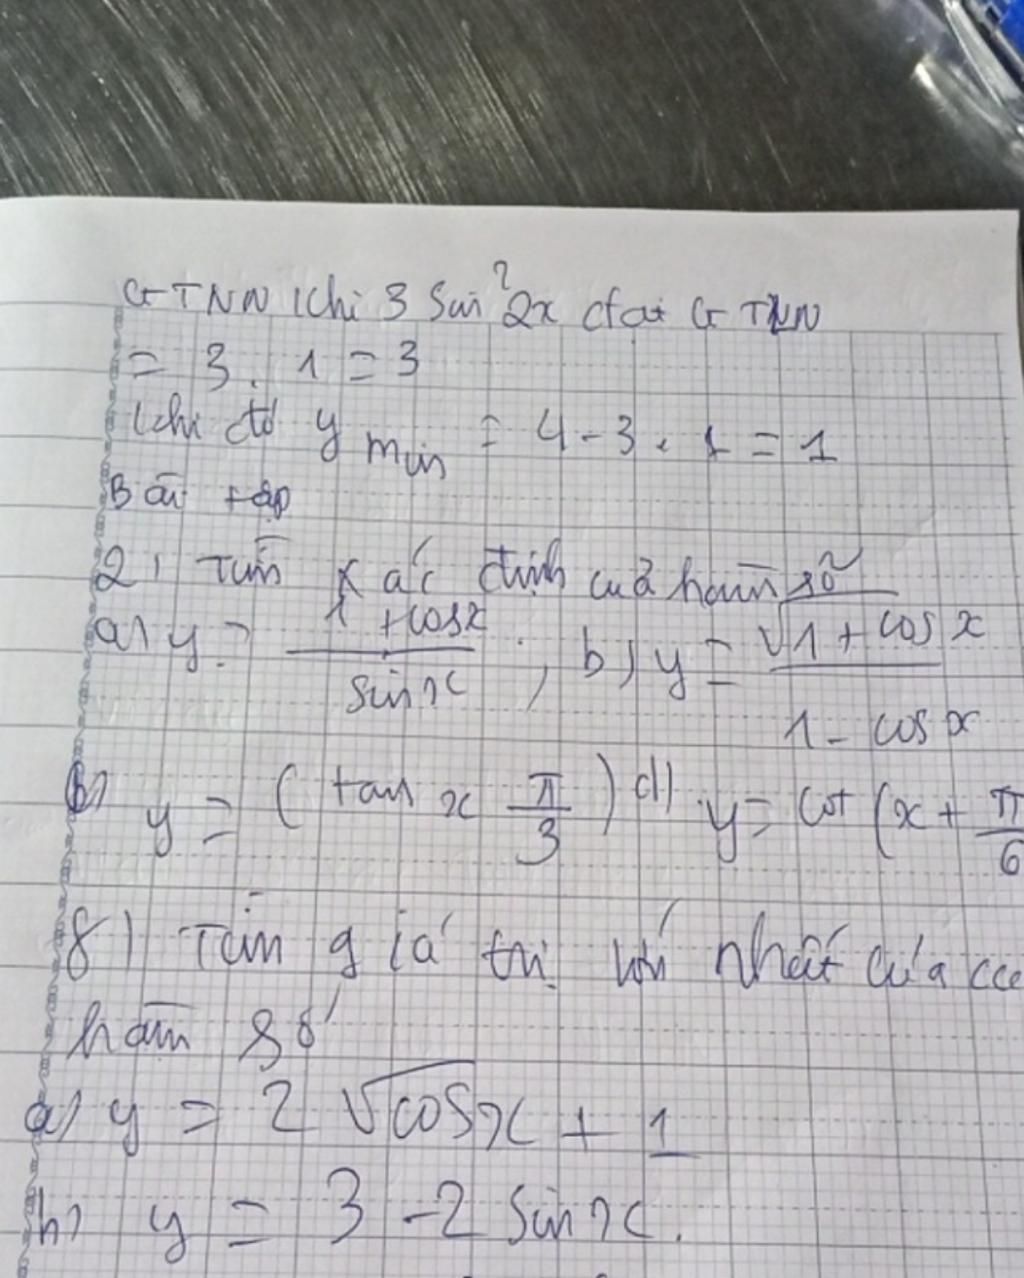 GTNN khi 3 sin²2x đạt GTNN
= 3. 1 = 3
khi đó y min = 4 - 3 . 1 = 1
Bài tập
2) Tìm xác định của hàm số
a) y = (1 + cosx)/(sin x) ; b) y = √(1 + cos x)/(1 - cos x)
y = (tan x π/3) d) y = cot (x + π/6
8) Tìm giá trị lớn nhất của các
hàm số
a) y = 2 √cosx + 1
b) y = 3 - 2 sin x.